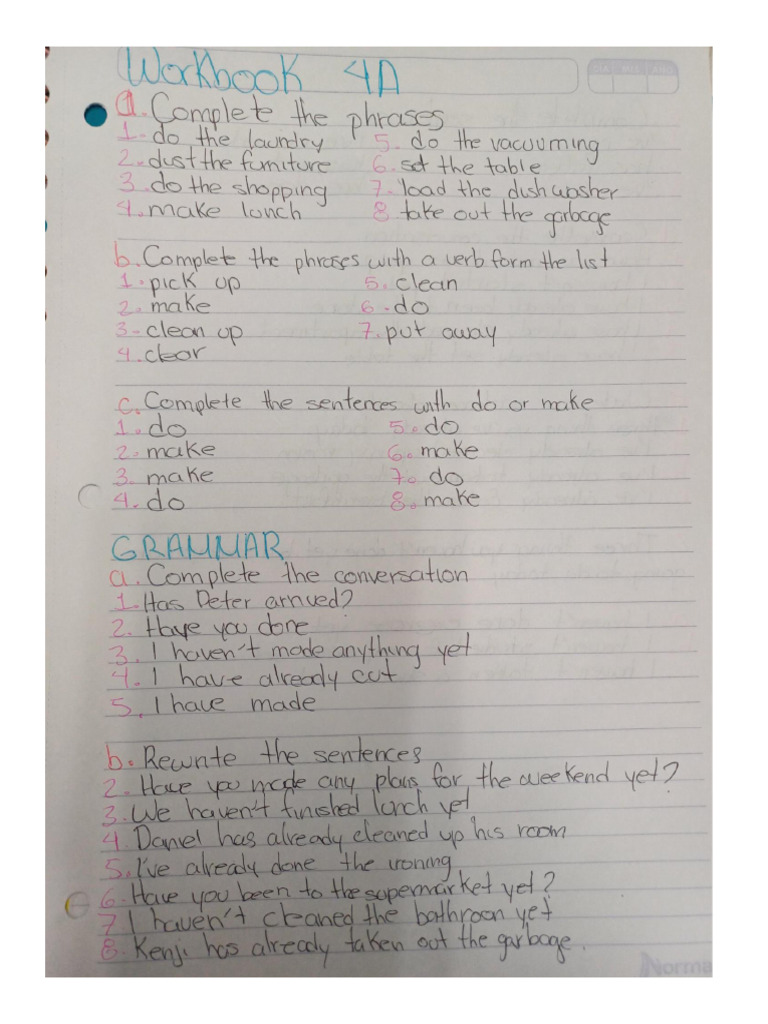 Workbook 4A
a. Complete the phrases
1- do the laundry 5. do the vacuuming
2- dust the furniture 6. set the table
3. do the shopping 7- load the dishwasher
4. make lunch 8 take out the garbage
b. Complete the phrases with a verb form the list
1. pick up 5. clean
2. make 6. do
3- clean up 7. put away
4. clear
c. Complete the sentences with do or make
1. do 5. do
2. make 6. make
3. make 7. do
4. do 8. make
GRAMMAR
a. Complete the conversation
1. Has Peter arrived?
2. Have you done
3. I haven't made anything yet
4. I have already cut
5. I have made
b. Rewrite the sentences
2. Have you made any plans for the weekend yet?
3. We haven't finished lunch yet
4. Daniel has already cleaned up his room
5. I've already done the ironing
6. Have you been to the supermarket yet?
7 I haven't cleaned the bathroon yet
8. Kenji has already taken out the garbage.
Norma